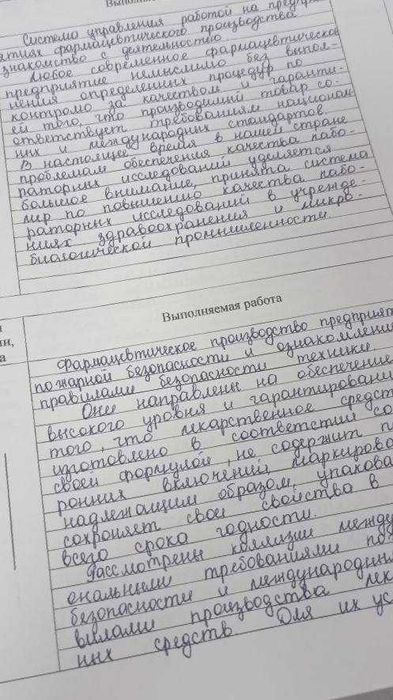 Выполн
Система управления работой на предпри
ятиях фармацевтического производства
знакомство с деятельностью.
Любое современное фармацевтическое
предприятие немыслимо без выпол-
нения определенных процедур по
контролю за качеством и гаранти-
ей того, что производимый товар со-
ответствует требованиям национал
ных и международных стандартов.
В настоящее время в нашей стране
проблемам обеспечения качества лабо-
раторных исследований уделяется
большое внимание, принята система
мир по повышению качества лабо-
раторных исследований в учрежде-
ниях здравоохранения и микро-
биологической промышленности.
Выполняемая работа
и
ии,
а
Фармацевтическое производство предприят
пожарной безопасности и ознакомлени
правилами безопасности техники.
Они направлены на обеспечение
высокого уровня и гарантировани
того, что лекарственное средст
изготовлено в соответствии со
своей формулой не содержит п
ронних включений маркирова
надлежащим образом, упакова
сохраняет свои свойства в
всего срока годности.
Рассмотрены коллизии между
ональными требованиями по
безопасности и международны
вилами производства лек
ных средств Для их ус